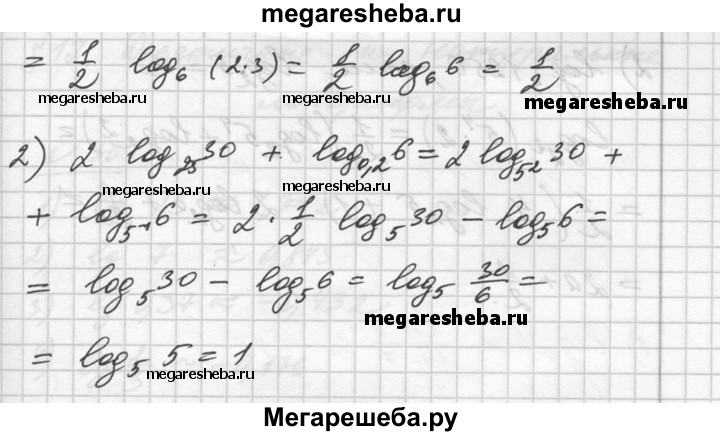 megaresheba.ru
= 1/2 log₆ (2·3) = 1/2 log₆ 6 = 1/2
megaresheba.ru megaresheba.ru megaresheba.ru
2) 2 log₂₅ 30 + log₀,₂ 6 = 2 log₅² 30 +
megaresheba.ru megaresheba.ru
+ log₅⁻¹ 6 = 2 · 1/2 log₅ 30 − log₅ 6 =
= log₅ 30 − log₅ 6 = log₅ 30/6 =
megaresheba.ru
= log₅ 5 = 1
megaresheba.ru
Мегарешеба.ру